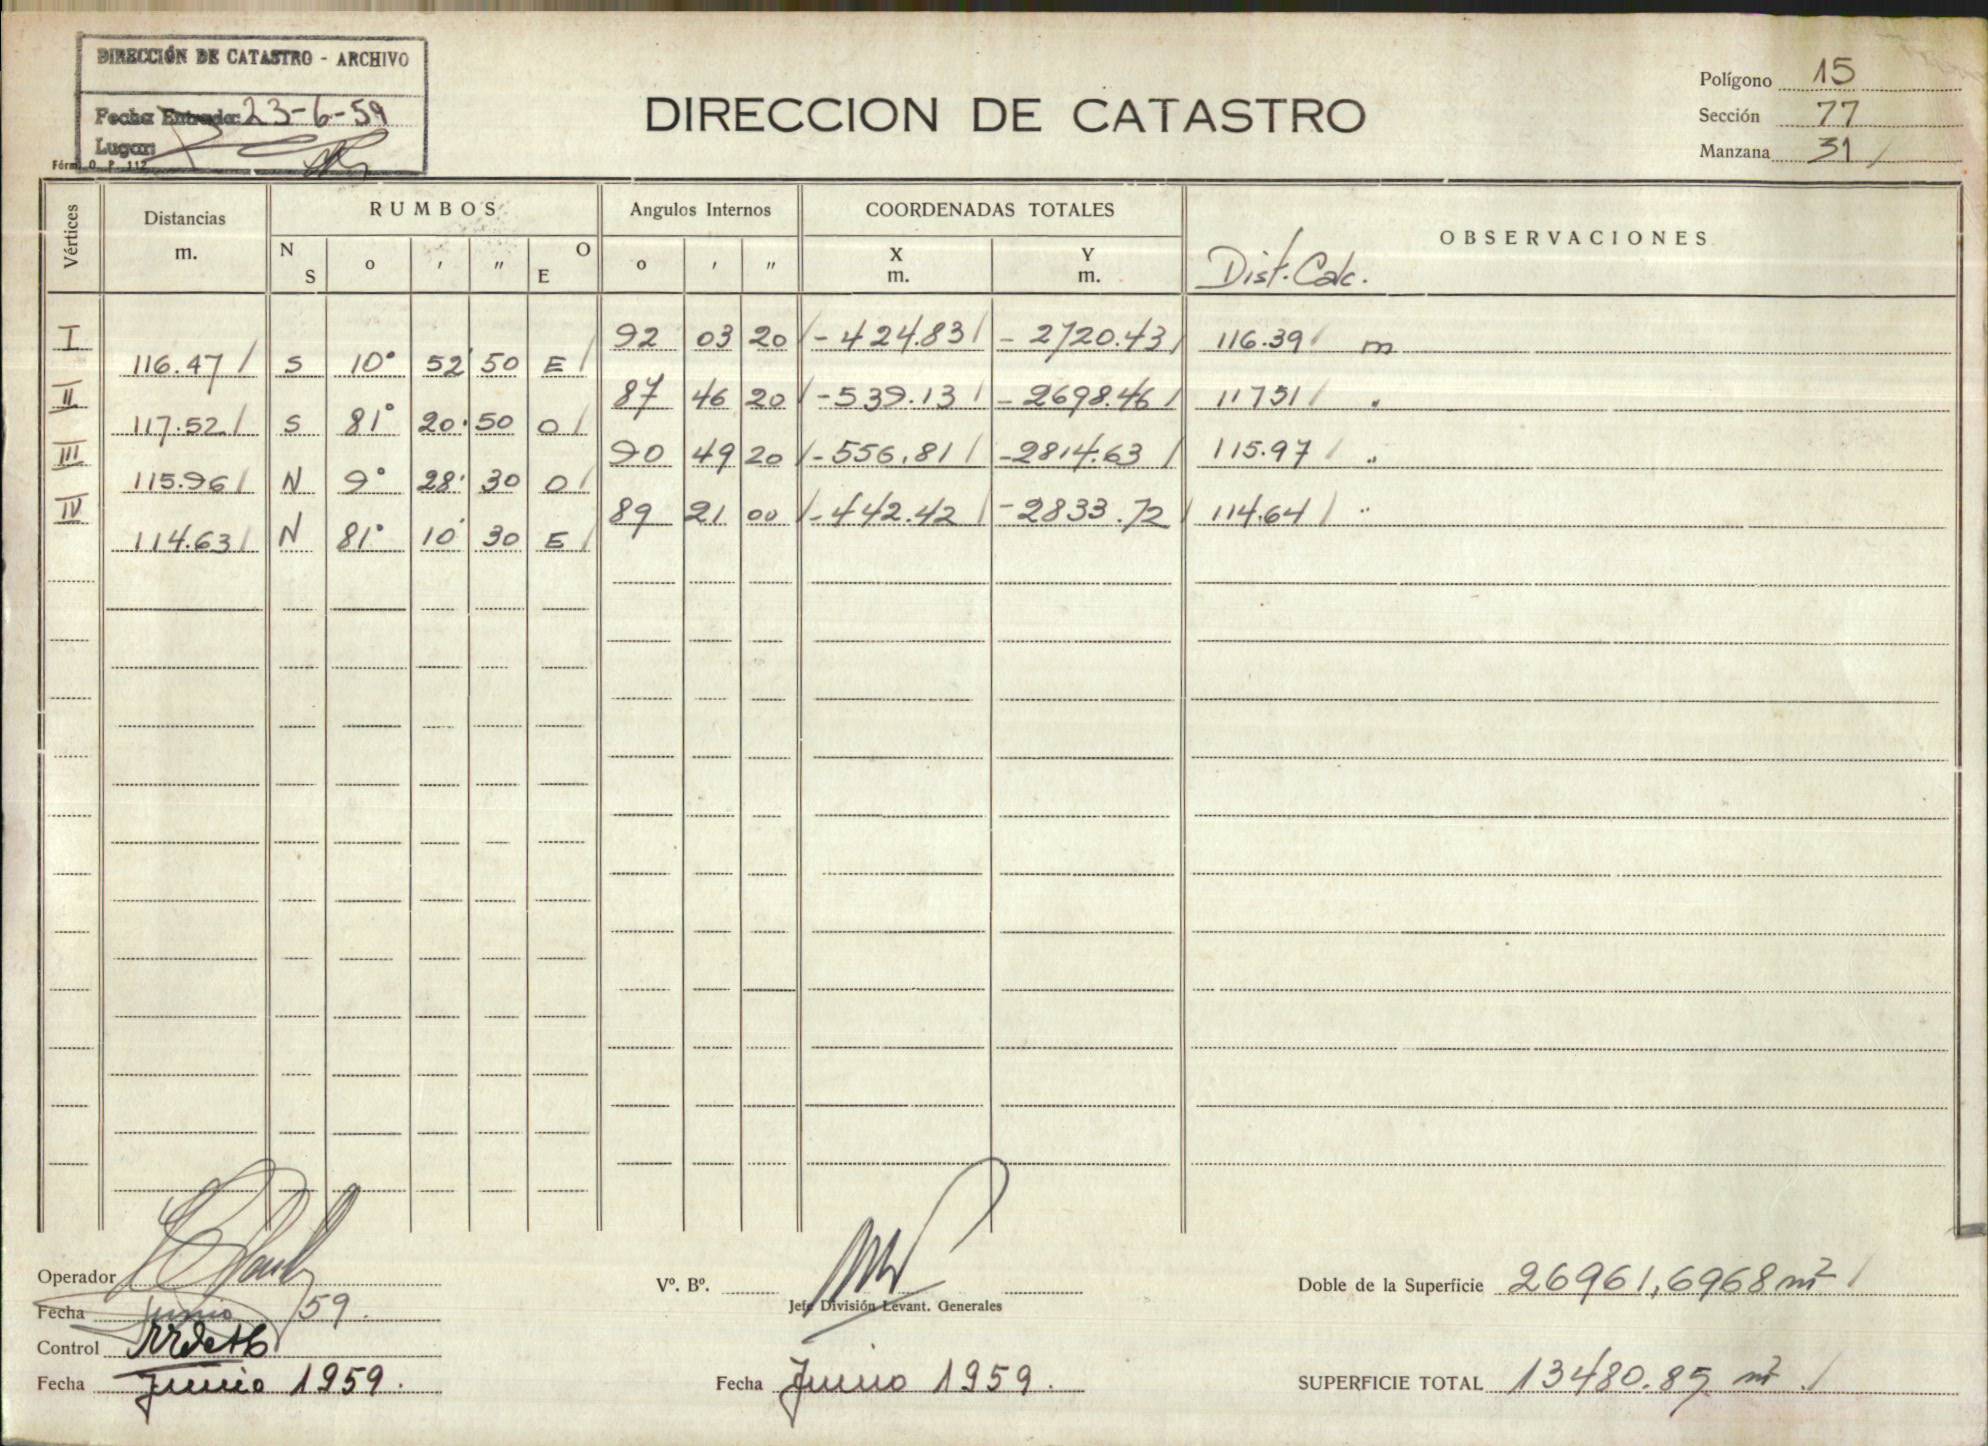 DIRECCIÓN DE CATASTRO - ARCHIVO
Fecha Entrada: 23-6-59
Lugar:
Fórm. O. P. 112
DIRECCION DE CATASTRO
Polígono 15
Sección 77
Manzana 31
Vértices Distancias m. RUMBOS N S o ' " O E Angulos Internos o ' " COORDENADAS TOTALES X m. Y m. OBSERVACIONES
Dist. Calc.
I 92 03 20 - 424.83 - 2720.43 116.39 m
116.47 S 10° 52' 50 E
II 87 46 20 - 539.13 - 2698.46 117 51 "
117.52 S 81° 20' 50 O
III 90 49 20 - 556.81 - 2814.63 115.97 "
115.96 N 9° 28' 30 O
IV 89 21 00 - 442.42 - 2833.72 114.64 "
114.63 N 81° 10' 30 E
Operador
Fecha junio /59.
Control
Fecha Junio 1959.
Vº. Bº.
Jefe División Levant. Generales
Fecha Junio 1959.
Doble de la Superficie 26961,6968 m²
SUPERFICIE TOTAL 13480.85 m²